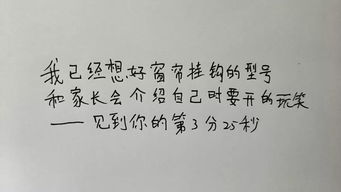 我已经想好窗帘挂钩的型号
和家长会介绍自己时要开的玩笑
——见到你的第3分25秒